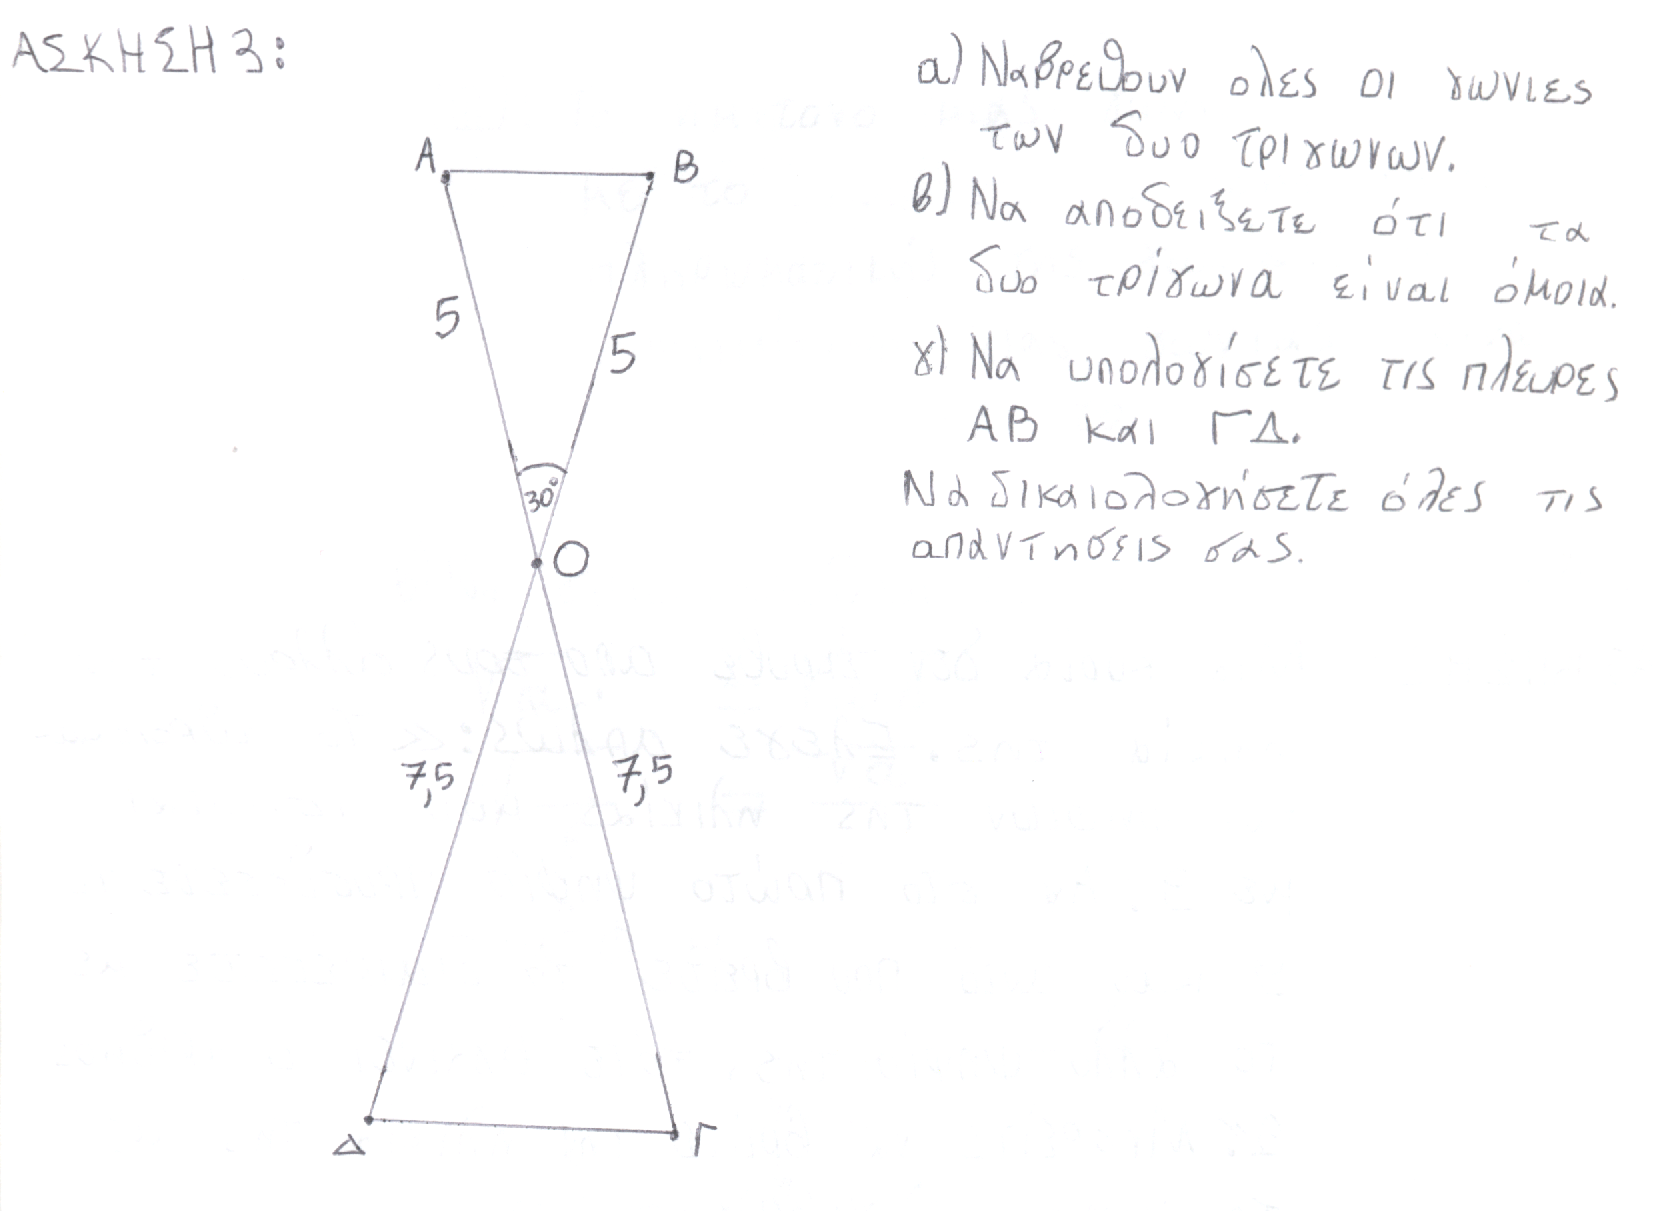 ΑΣΚΗΣΗ 3:
α) Να βρεθουν ολες οι γωνιες
των δυο τριγωνων.
β) Να αποδειξετε ότι τα
δυο τρίγωνα είναι όμοια.
γ) Να υπολογίσετε τις πλευρες
ΑΒ και ΓΔ.
Να δικαιολογήσετε όλες τις
απαντησεις σας.
Α
Β
5
5
30°
Ο
7,5
7,5
Δ
Γ